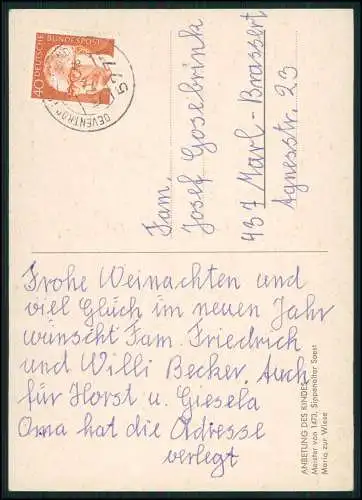 DEUTSCHE BUNDESPOST
40
577
Fam.
Josef Gosebrink
437 Marl-Brassert
Agnesstr. 23
Frohe Weinachten und
viel Glück im neuen Jahr
wünscht Fam. Friedrich
und Willi Becker. Auch
für Horst u. Giesela
Oma hat die Adresse
verlegt
ANBETUNG DES KINDES
Meister von 1473, Sippenaltar Soest
Maria zur Wiese